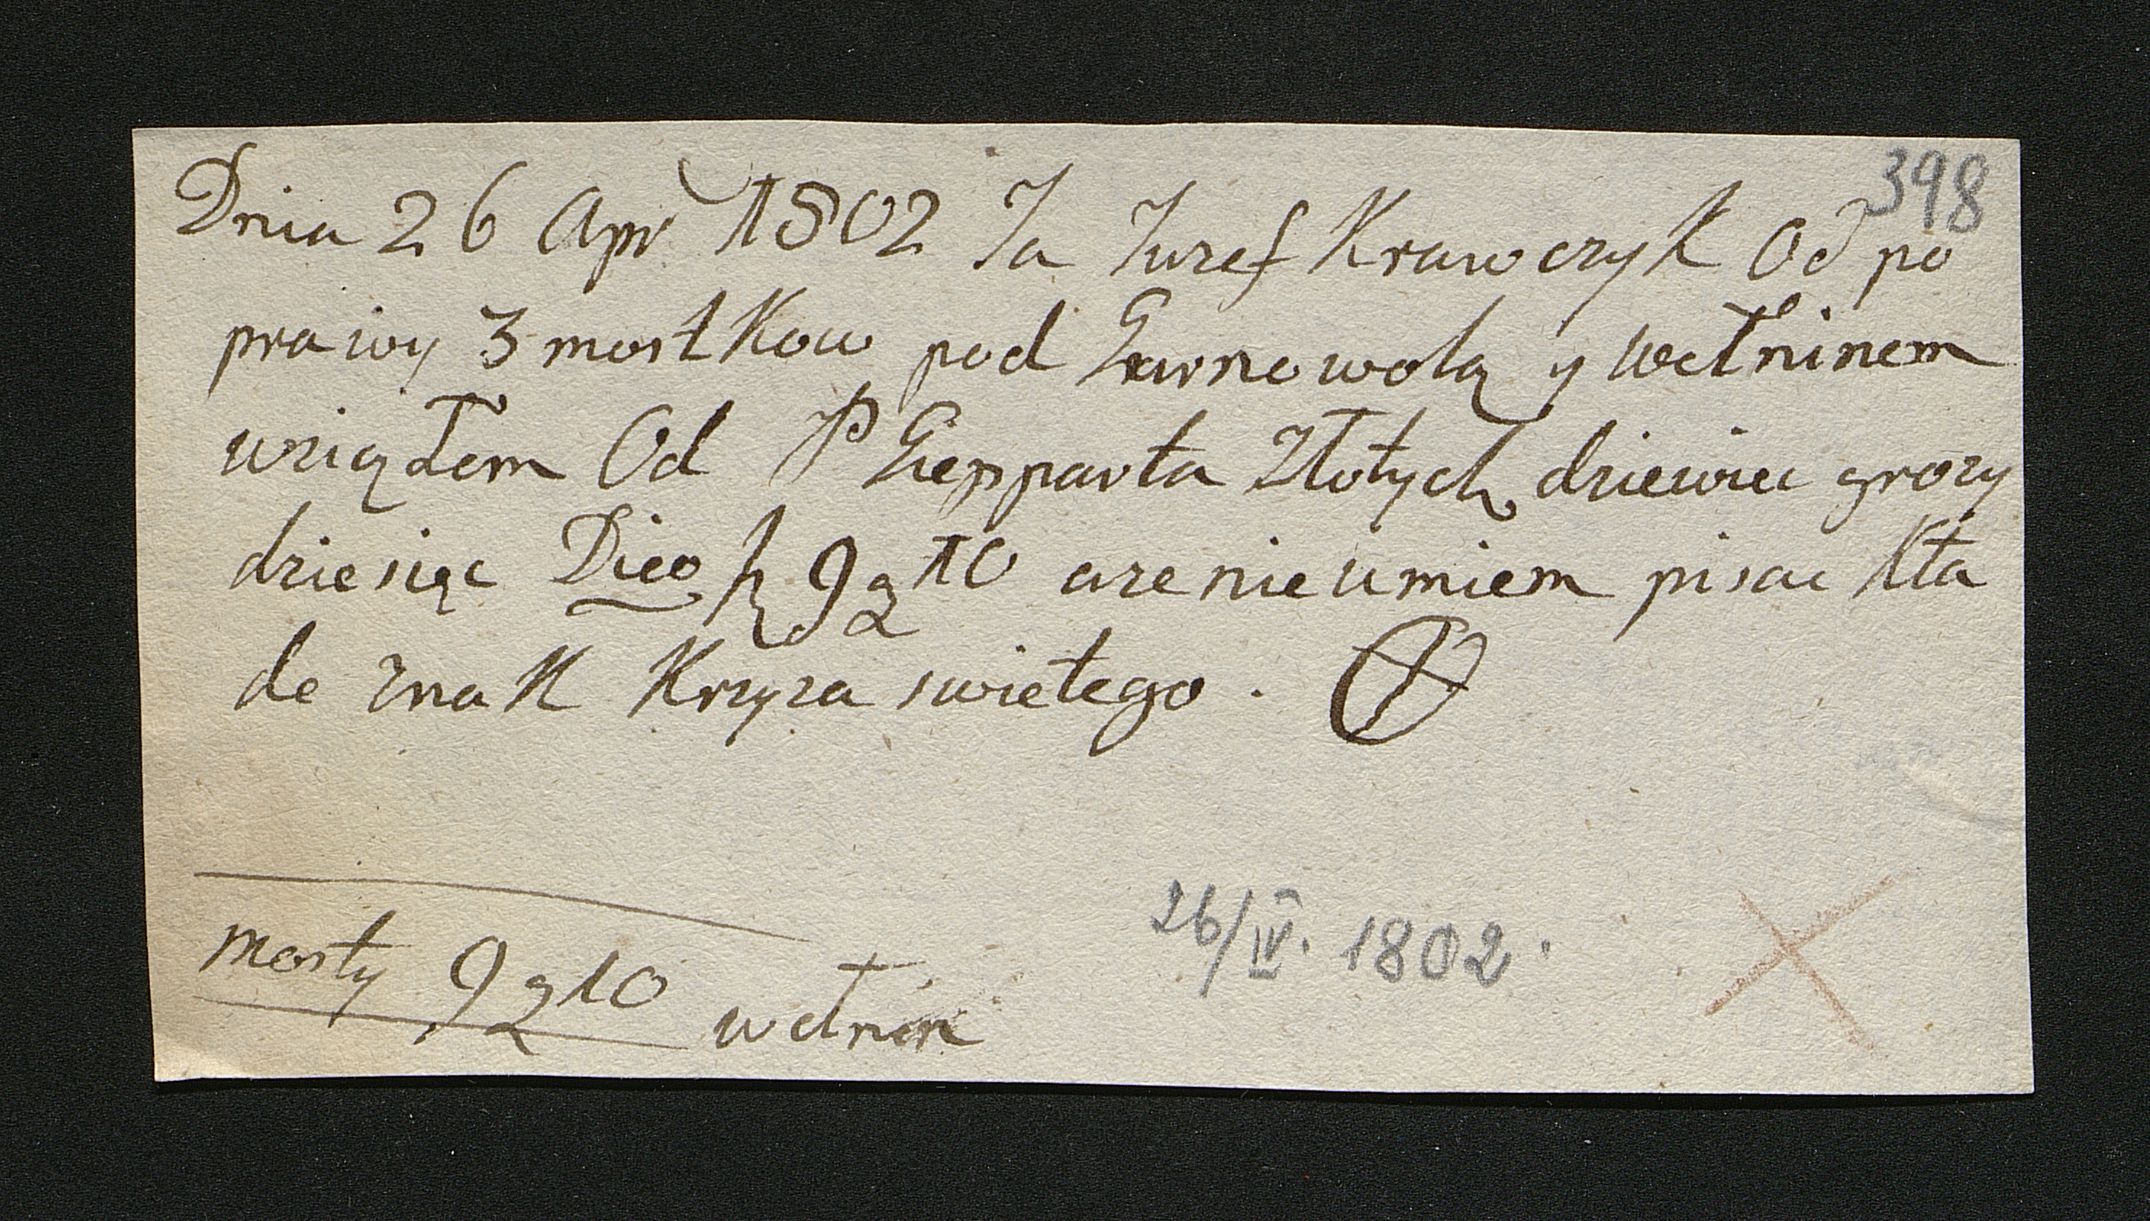 398
Dnia 26 Apr 1802 Ja Juzef Krawczyk Od po
prawy 3 mostkow pod Garnowolą y Wełninem
wziąłem Od P Giepparta Złotych dziewiec grozy
dziesięc Dico zł 9 g 10 aze nie umiem pisac kła
de znak Krzyza swietego.
mosty 9 g 10
wełnin
26/IV. 1802.